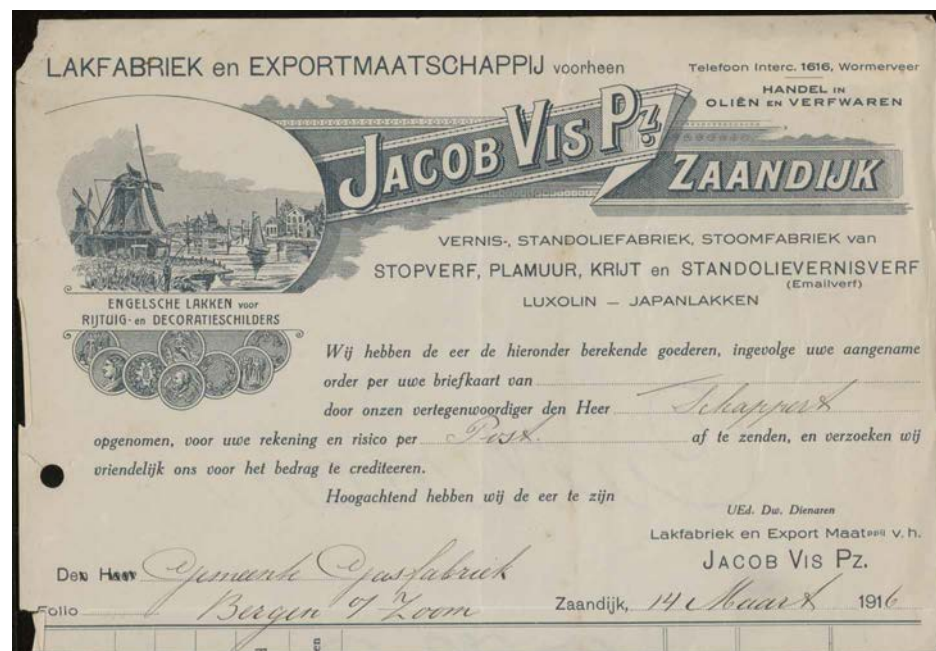 LAKFABRIEK en EXPORTMAATSCHAPPIJ voorheen
Telefoon Interc. 1616, Wormerveer
HANDEL IN
OLIËN EN VERFWAREN
JACOB VIS PZ.
ZAANDIJK
VERNIS-, STANDOLIEFABRIEK, STOOMFABRIEK van
STOPVERF, PLAMUUR, KRIJT en STANDOLIEVERNISVERF
(Emailverf)
LUXOLIN — JAPANLAKKEN
ENGELSCHE LAKKEN voor
RIJTUIG- en DECORATIESCHILDERS
Wij hebben de eer de hieronder berekende goederen, ingevolge uwe aangename
order per uwe briefkaart van
door onzen vertegenwoordiger den Heer Schappert
opgenomen, voor uwe rekening en risico per Post. af te zenden, en verzoeken wij
vriendelijk ons voor het bedrag te crediteeren.
Hoogachtend hebben wij de eer te zijn
UEd. Dw. Dienaren
Lakfabriek en Export Maatppij v.h.
JACOB VIS PZ.
Den Heer Gemeente Gasfabriek
Bergen o/ Zoom
Folio
Zaandijk, 14 Maart 1916